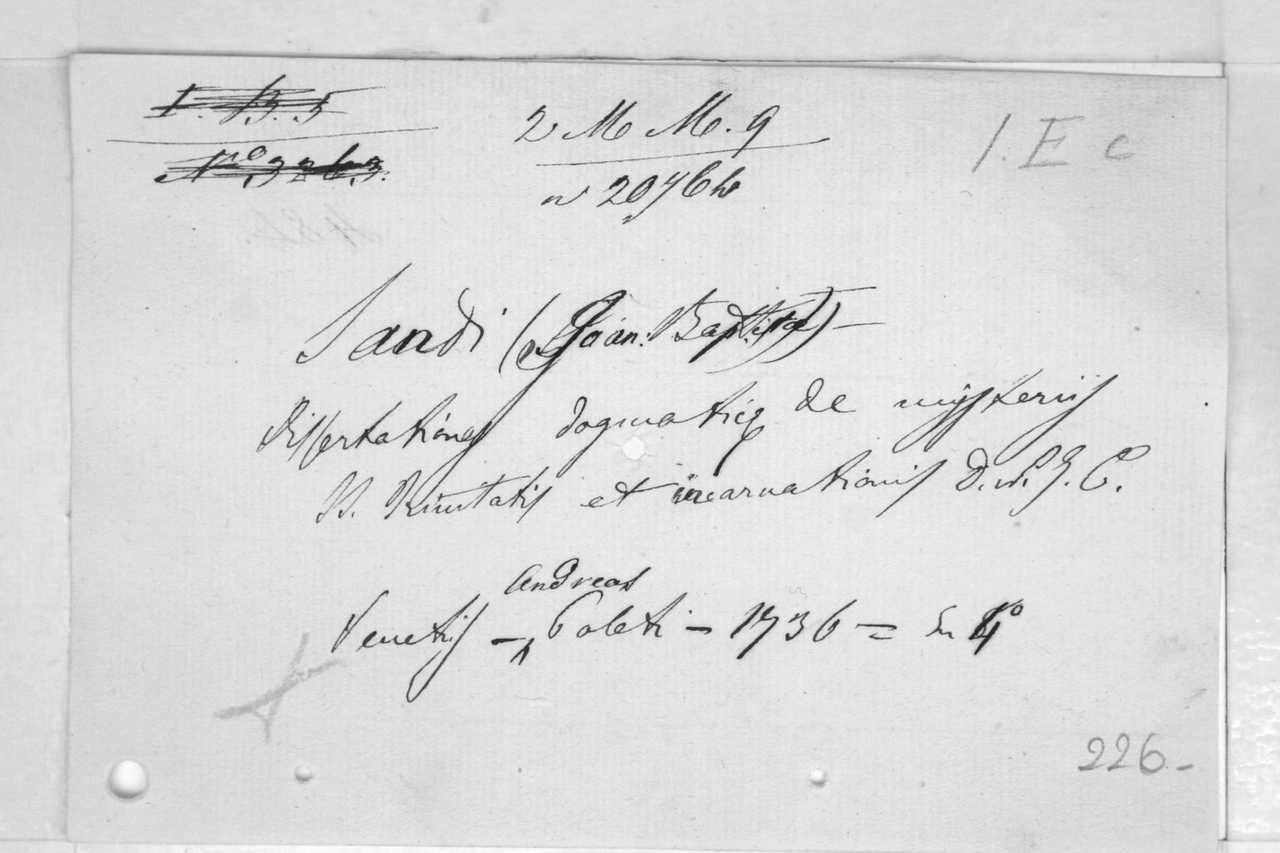 I. B. 5
N.º 3263.
2 M M. 9
n 2076 b
1. E c
Sandi (Joan: Baptista) —
Dissertationes dogmaticę de mysteriis
SS. Trinitatis et incarnationis D. N. J. C.
Andreas
Venetiis — Poleti — 1736 = in 4º
226 -